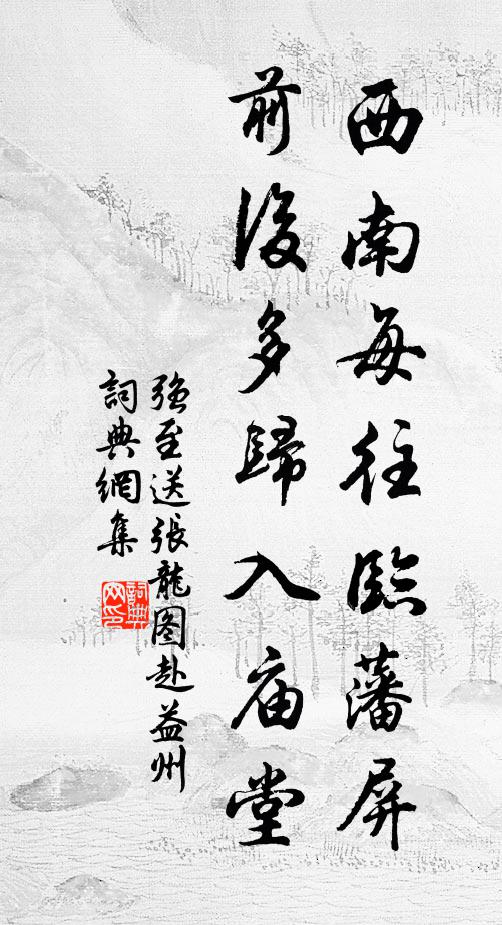 西南每往臨藩屏
前後多歸入庙堂
强至送張龍图赴益州
詞典網集
詞典網印